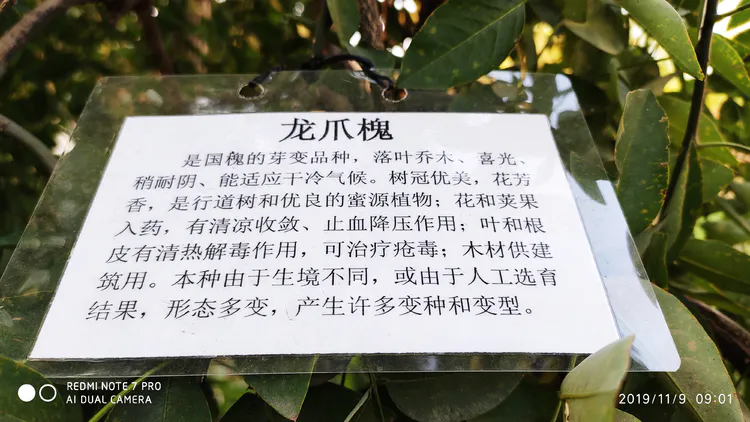 龙爪槐
是国槐的芽变品种，落叶乔木、喜光、
稍耐阴、能适应干冷气候。树冠优美，花芳
香，是行道树和优良的蜜源植物；花和荚果
入药，有清凉收敛、止血降压作用；叶和根
皮有清热解毒作用，可治疗疮毒；木材供建
筑用。本种由于生境不同，或由于人工选育
结果，形态多变，产生许多变种和变型。
REDMI NOTE 7 PRO
AI DUAL CAMERA
2019/11/9 09:01